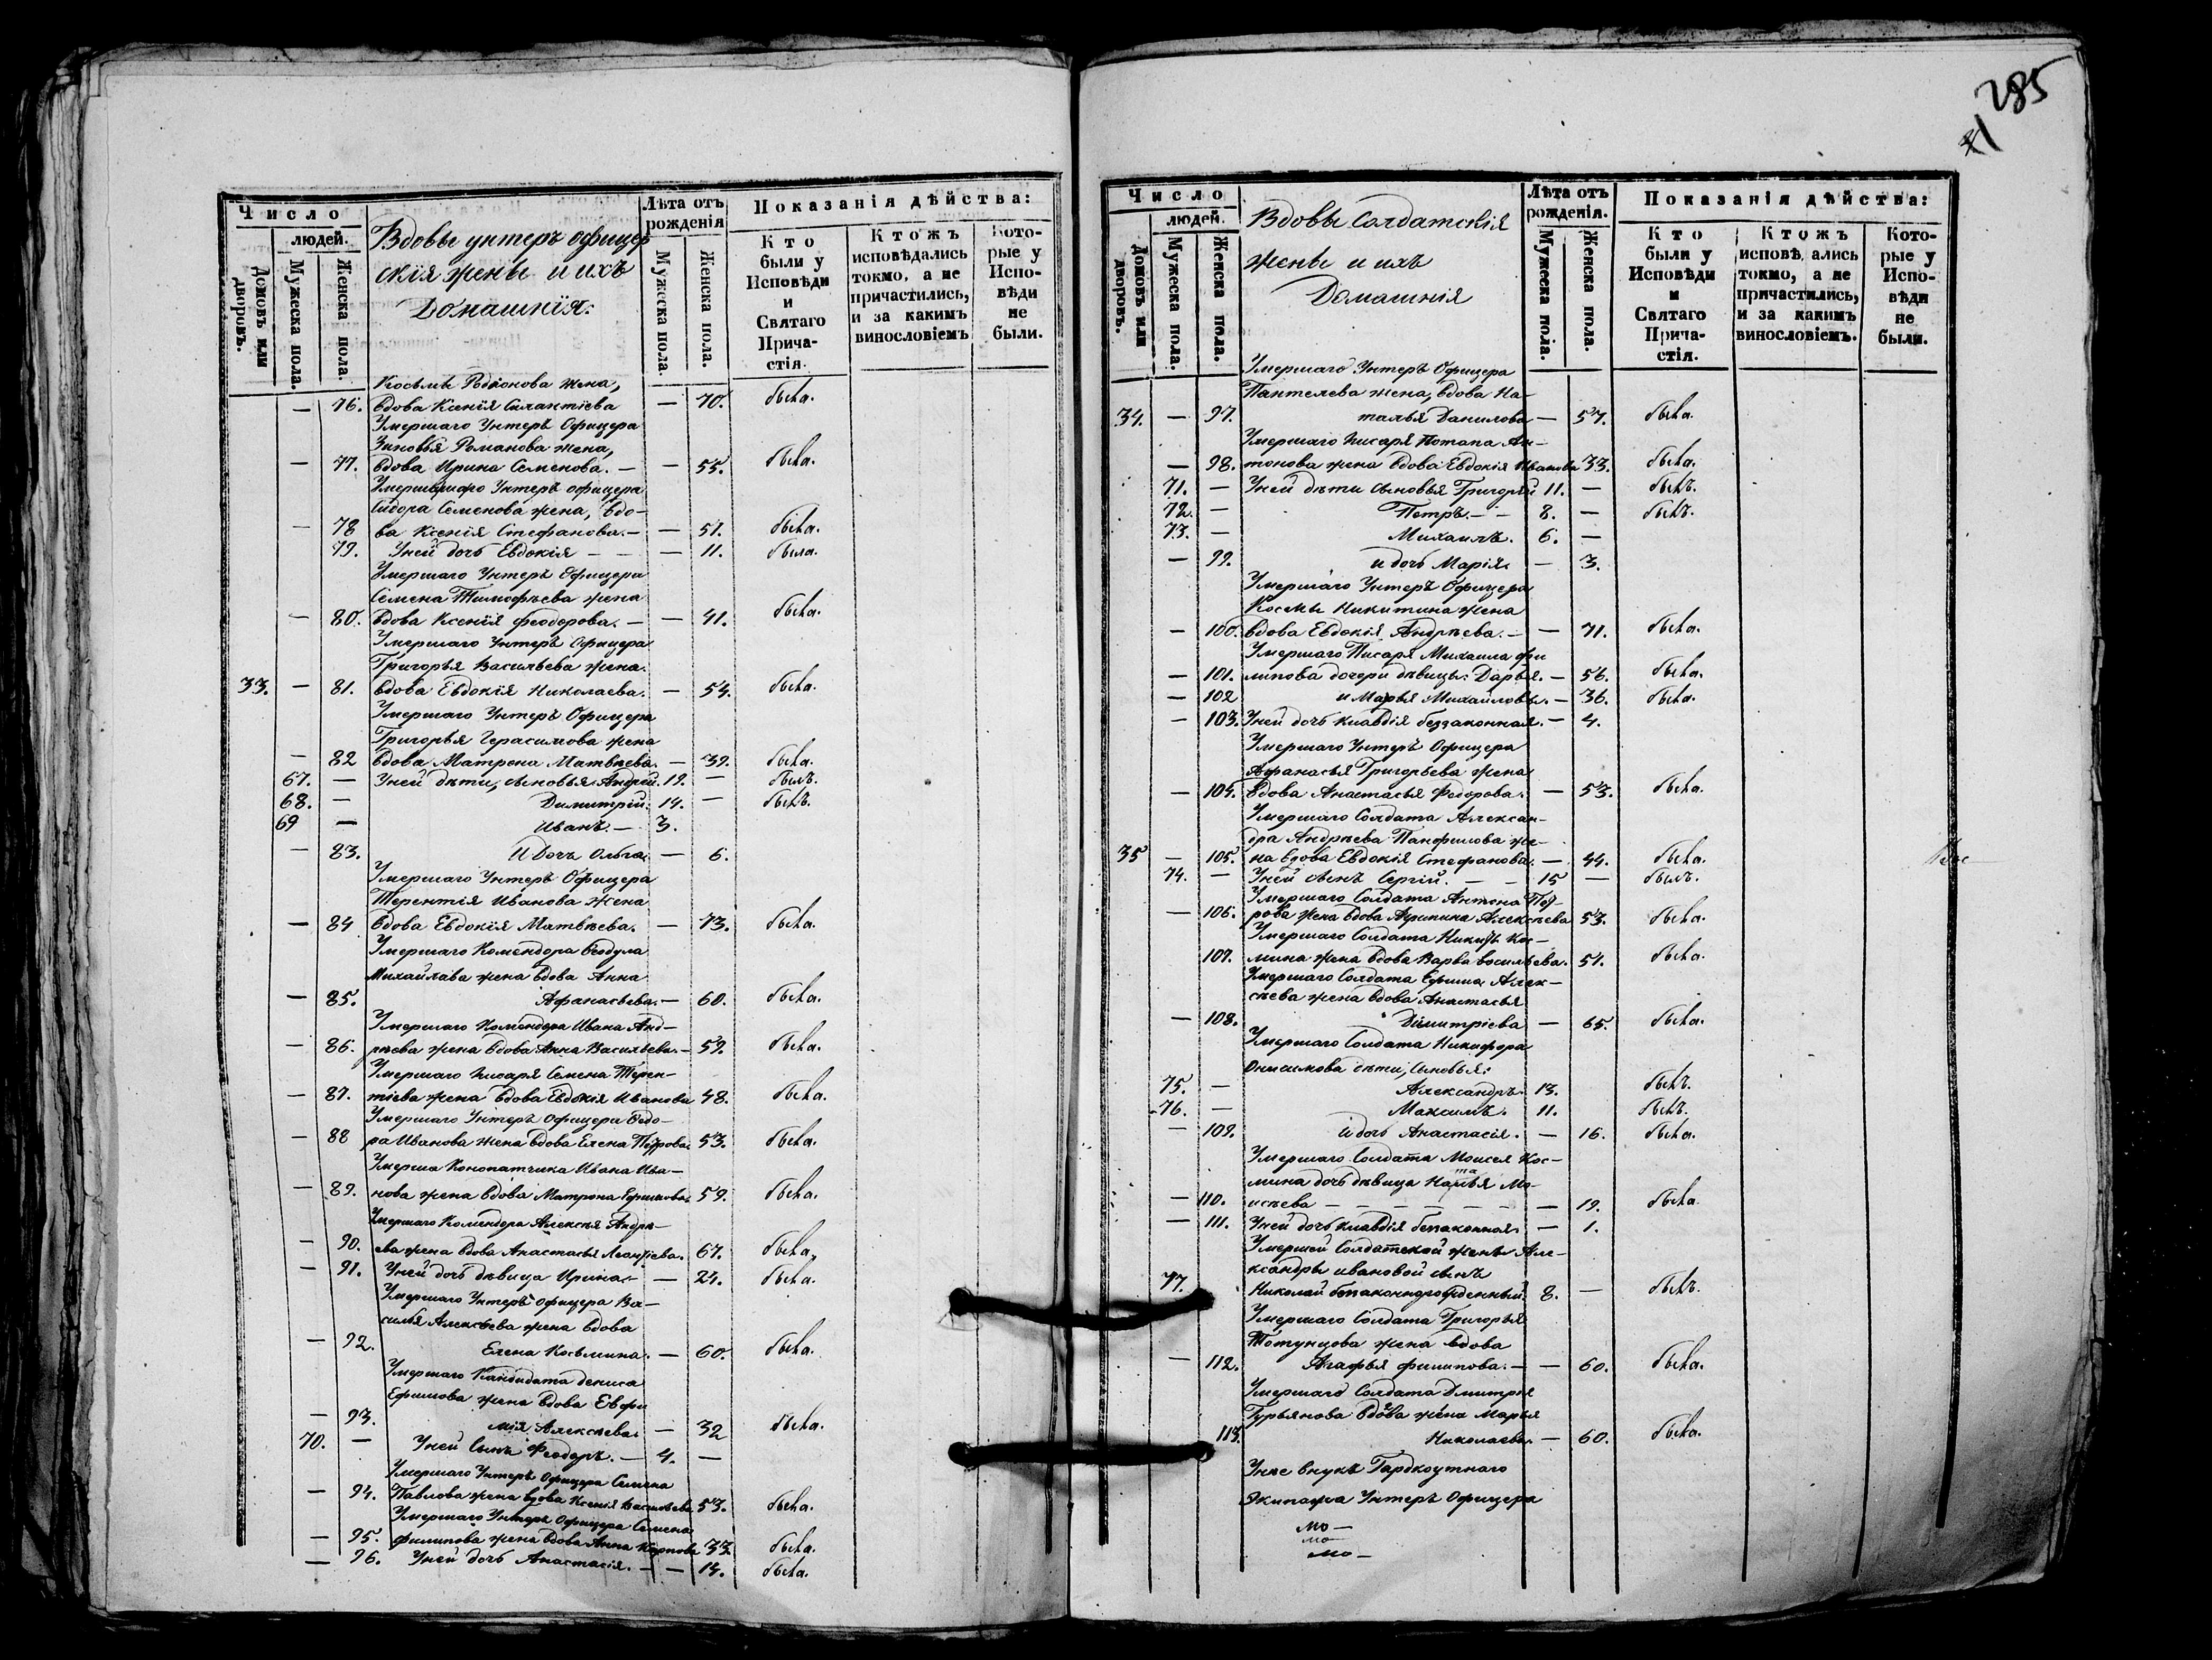 285
Число
людей.
Домовъ или дворовъ.
Мужеска пола.
Женска пола.
Вдовы унтеръ офицер
скія жены и ихъ
Домашнія:
Лѣта отъ рожденія
Мужеска пола.
Женска пола.
Показанія дѣйства:
Кто были у Исповѣди и Святаго Причастія.
Ктожъ исповѣдались токмо, а не причастились, и за какимъ винословіемъ
Которые у Исповѣди не были.
Косьмы Родіонова жена,
— 76. вдова Ксенія Силантіева — 70. была.
Умершаго Унтеръ Офицера
Зиновья Романова жена,
— 77. вдова Ирина Семенова. — — 55. была.
Умершаго Унтеръ офицера
Сидора Семенова жена, вдо-
— 78 ва Ксенія Стефанова. — — 51. была.
79. Уней дочь Евдокія — — — 11. была.
Умершаго Унтеръ Офицера
Семена Тимофѣева жена
— 80. вдова Ксенія Феодорова. — — 41. была.
Умершаго Унтеръ Офицера
Григорья Васильева жена.
33. — 81. вдова Евдокія Николаева. — 54. была.
Умершаго Унтеръ Офицера
Григорья Герасимова жена
— 82 вдова Матрена Матвѣева. — 39. была.
67. — Уней дѣти, сыновья Андрей. 19. — былъ.
68. — Димитрій. 14. — былъ.
69 — Иванъ. — 3.
— 83. И Дочь Ольга. — 6.
Умершаго Унтеръ Офицера
Терентія Иванова жена
— 84 вдова Евдокія Матвѣева. — 73. была.
Умершаго Комендора Ѳеодула
Михайлава жена вдова Анна
— 85. Афанасьева. — 60. была.
Умершаго Комендора Ивана Анд-
— 86. рѣева жена вдова Анна Васильева. — 59. была.
Умершаго писаря Семена Терен-
— 87. тіева жена вдова Евдокія Иванова 48. была.
Умершаго Унтеръ Офицера Ѳедо-
— 88 ра Иванова жена вдова Елена Петрова 53. была.
Умерша Конопатчика Ивана Ива-
— 89. нова жена вдова Матрона Ефимова. 59. была.
Умершаго Комендора Алексѣя Андрѣ-
— 90. ева жена вдова Анастасья Леонтіева. 67. была.
— 91. Уней дочь дѣвица Ирина. — — 24. была.
Умершаго Унтеръ офицера Ва-
силья Алексѣева жена вдова
— 92. Елена Косьмина. — 60. была.
Умершаго Кандидата дениса
Ефимова жена вдова Евфи
— 93. мія Алексѣева. — 32 была.
70. — Уней Сынъ Феодоръ. — 4. —
Умершаго Унтеръ Офицера Семена
— 94. Павлова жена вдова Ксенія Васильева 53. была.
Умершаго Унтеръ Офицера Семена
— 95. Филипова жена вдова Анна Карпова 33 была.
— 96. Уней дочь Анастасія. — — 14. была.
Число
людей.
Домовъ или дворовъ.
Мужеска пола.
Женска пола.
Вдовы Солдатскія
жены и ихъ
Домашнія
Лѣта отъ рожденія.
Мужеска пола.
Женска пола.
Показанія дѣйства:
Кто были у Исповѣди и Святаго Причастія.
Ктожъ исповѣдались токмо, а не причастились, и за какимъ винословіемъ.
Которые у Исповѣди не были.
Умершаго Унтеръ Офицера
Пантелева жена, вдова На-
34. — 97. талья Данилова — 57. была.
Умершаго писаря Потапа Ан-
— 98. тонова жена вдова Евдокія Иванова 33. была.
71. — Уней дѣти сыновья Григорій 11. — былъ.
72. — Петръ. — — 8. — былъ.
73. — Михаилъ. 6. —
— 99. и дочь Марія. — 3.
Умершаго Унтеръ Офицера
Космы Никитина жена
— 100. вдова Евдокія Андрѣева. — — 71. была.
Умершаго Писаря Михаила Фи
— 101. липова дочери дѣвицы: Дарья. — 56. была.
— 102 и Марья Михайловы. — 36. была.
— 103. Уней дочь Клавдія беззаконная. — 4.
Умершаго Унтеръ Офицера
Афанасья Григорьева жена
— 104. вдова Анастасья Федорова. — 53. была.
Умершаго Солдата Алексан-
дра Андрѣева Панфилова же-
35 — 105. на вдова Евдокія Стефанова. — 44. была.
74. — Уней сынъ Сергій. — — 15 — былъ.
Умершаго Солдата Антона
— 106. рова жена вдова Акулина Алексѣева 53. была.
Умершаго Солдата Никиты Кос-
107. мина жена вдова Варва васильева. 51. была.
Умершаго Солдата Ефима Алек-
сѣева жена вдова Анастасья
— 108. Димитріева — 65. была.
Умершаго Солдата Никифора
Онисимова дѣти, сыновья:
75. — Александръ. 13. былъ.
76. — Максимъ. 11. былъ.
— 109. и дочь Анастасія. — 16. была.
Умершаго Солдата Моисея Кос-
мина дочь дѣвица Наталья Мо-
— 110. исѣева — — — — — — 19. была.
— 111. Уней дочь Клавдія безаконная. — 1.
Умершей Солдатской жены Але-
ксандры ивановой сынъ
77. Николай безаконнорожденный. 8. — былъ.
Умершаго Солдата Григорья
жена вдова
— 112. Агафья филипова. — — 60. была.
Умершаго Солдата Дмитрія
Гурьянова вдова жена Марья
113. Николаева. — 60. была.
Унее внукъ
Экипажа Унтеръ Офицера
мо —
мо
мо —